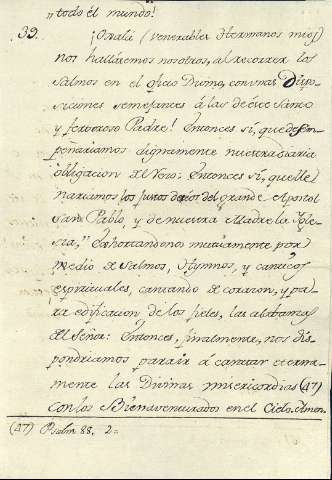 „todo él mundo!
39.
¡Oxalá (venerables Hermanos mios)
nos halláremos nosotros, al recorrer los
Salmos en el oficio Divino, con unas Dispo-
siciones semejantes á las de éste Santo
y fervoroso Padre! Entonces sí, que desem-
peñariamos dignamente nuestra diaria
obligacion de Coro: Entonces sí, que lle-
nariamos los justos deséos del grande Apostol
San Pablo, y de nuestra Madre la Igle-
sia, " Exhortandonos mutuamente por
medio de Salmos, Hymnos, y canticos
espirituales, cantando de corazon, y pa-
ra edificacion de los fieles, las alabanzas
del Señor: Entonces, finalmente, nos dis-
pondriamos para ir á cantar eterna-
mente las Divinas misericordias (47)
con los Bienaventurados en el Cielo. Amen.
(47) Psalm. 88. 2.=